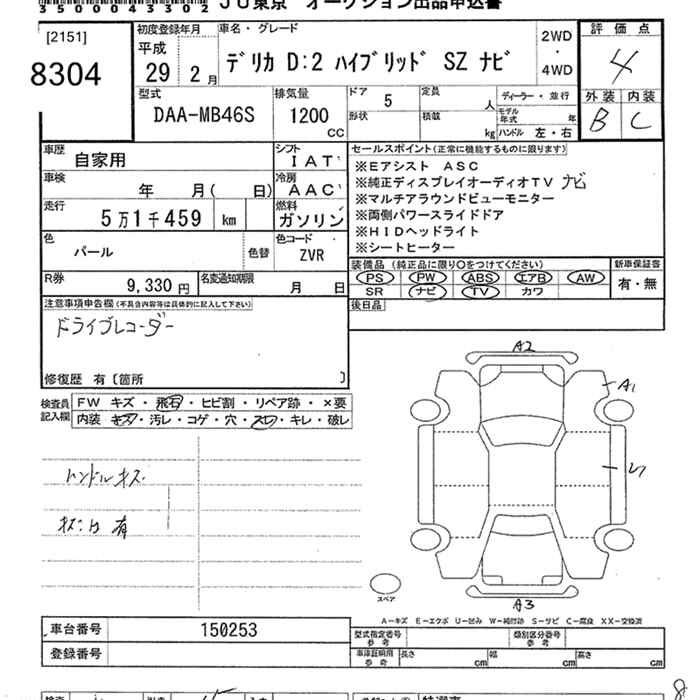 35000043302 JU東京 オークション出品申込書
[2151]
8304
初度登録年月
平成
29 2月
車名・グレード
デリカ D:2 ハイブリッド SZ ナビ
2WD
・
4WD
評価点
4
型式
DAA-MB46S
排気量
1200
CC
ドア 5
定員 人
形状
積載 kg
ディーラー・並行
モデル年式 年
ハンドル 左・右
外装 内装
B C
車歴 自家用
シフト IAT
車検 年 月( 日)
冷房 AAC
走行 5万1千459 km
燃料 ガソリン
色 パール 色替
色コード ZVR
R券 9,330円
名変通知期限 月 日
セールスポイント(正常に機能するものに限ります)
※Eアシスト ASC
※純正ディスプレイオーディオTV ナビ
※マルチアラウンドビューモニター
※両側パワースライドドア
※HIDヘッドライト
※シートヒーター
装備品(純正品に限り○をつけてください)
PS PW ABS エアB AW
SR ナビ TV カワ
新車保証書
有・無
後日品
注意事項申告欄(不具合内容等は具体的に記入して下さい)
ドライブレコーダー
修復歴 有〔箇所 〕
検査員記入欄
FW キズ・飛石・ヒビ割・リペア跡・×要
内装 キズ・汚レ・コゲ・穴・スレ・キレ・破レ
ハンドルキズ
有
A2
A1
A3
スペア
A-キズ E-エクボ U-凹み W-補修跡 S-サビ C-腐食 XX-交換済
車台番号 150253
登録番号
型式指定番号 参考
類別区分番号 参考
車庫証明用 参考 長さ cm 幅 cm 高さ cm